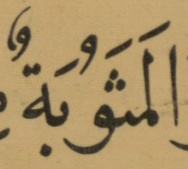 المَثُوبَةُ